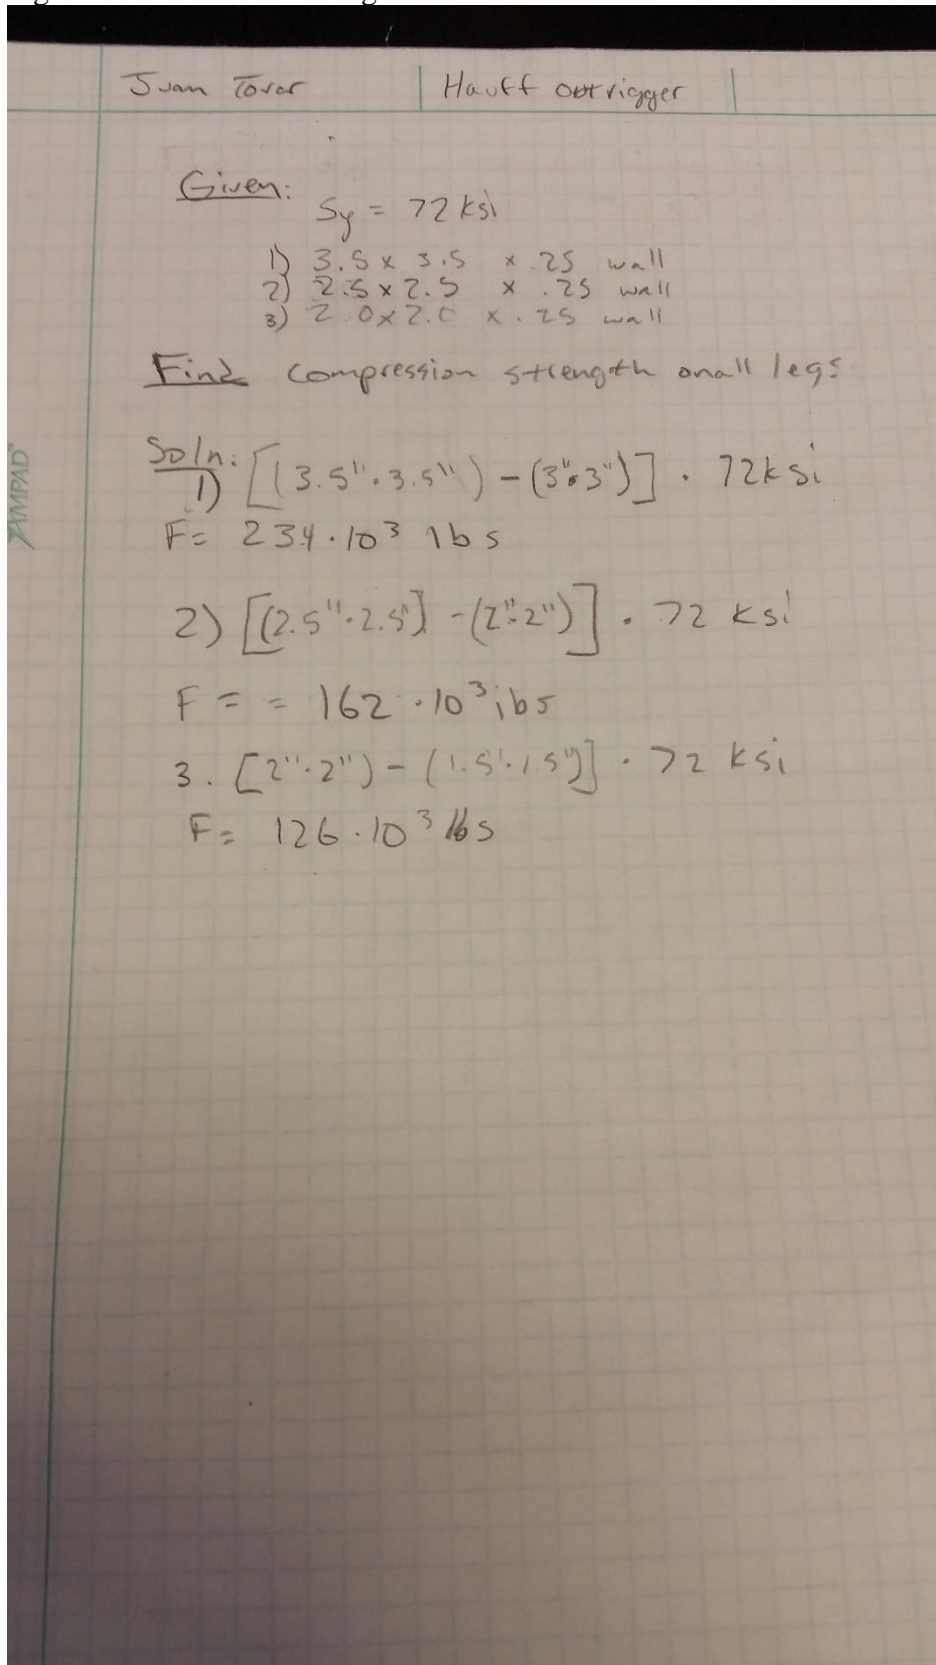 Juan Tovar | Hauff outrigger |
Given:
Sy = 72 ksi
1) 3.5 x 3.5 x .25 wall
2) 2.5 x 2.5 x .25 wall
3) 2.0 x 2.0 x .25 wall
Find compression strength on all legs
AMPAD
Soln:
1) [(3.5"·3.5") - (3"·3")] · 72ksi
F= 234·10³ lbs
2) [(2.5"·2.5"] - (2"·2")] · 72 ksi
F = = 162·10³ ibs
3. [2"·2") - (1.5"·1.5")] · 72 ksi
F= 126·10³ lbs